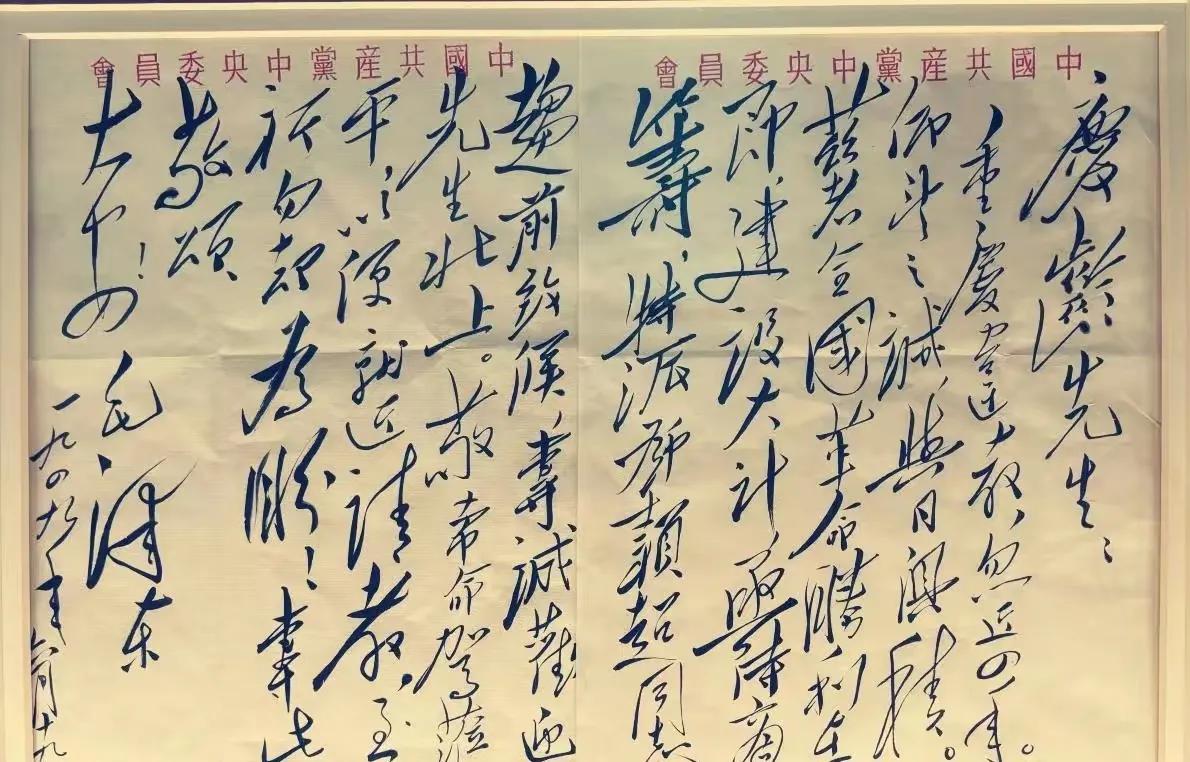 中國共産黨中央委員會
慶齡先生：
重慶違教，忽近四年。
仰望之誠，與日俱積。
兹者全國革命勝利在
即，建設大計，亟待商
籌，特派鄧穎超同志
中國共産黨中央委員會
趨前致候，專誠歡迎
先生北上。敬希命駕莅
平，以便就近請教，至
祈勿却為盼！專此
敬頌
大安！
毛澤东
一九四九年六月十九